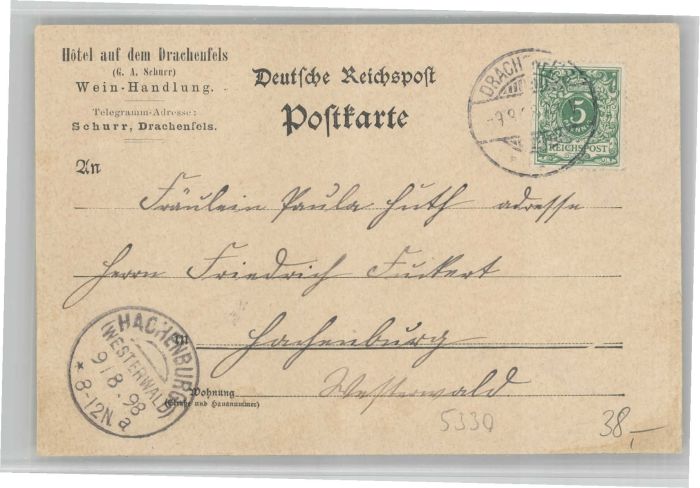 Hôtel auf dem Drachenfels
(G. A. Schurr)
Wein-Handlung.
Telegramm-Adresse:
Schurr, Drachenfels.
Deutsche Reichspost
Postkarte
DRACHENFELS
5
REICHSPOST
An
Fräulein Paula Huth adresse
Herrn Friedrich Fuckert
in Hachenburg
Westerwald
Wohnung
(Straße und Hausnummer)
HACHENBURG
(WESTERWALD)
9/8.98
* 8-12N. a
5330
38,-